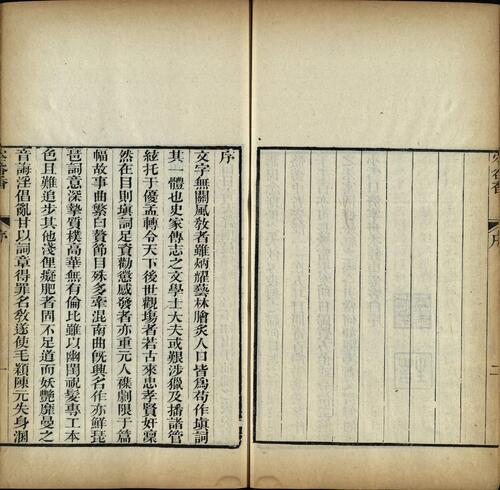 序
文字無關風敎者雖炳耀藝林膾炙人口皆爲苟作塡詞
其一體也史家傳志之文學士大夫或艱涉獵及播諸管
絃托于優孟轉令天下後世觀場者若古來忠孝賢奸凜
然在目則塡詞足資勸懲感發者亦重元人襍劇限于篇
幅故事曲繁白贅節目殊多牽混南曲旣興名作亦鮮琵
琶詞意深摯質樸高華無有倫比雖以幽閨祝髮專工本
色且難追步其他淺俚癡肥者固不足道而妖艷靡曼之
音誨淫倡亂甘以詞章得罪名敎遂使毛穎陳元失身溷
序
一
序
二